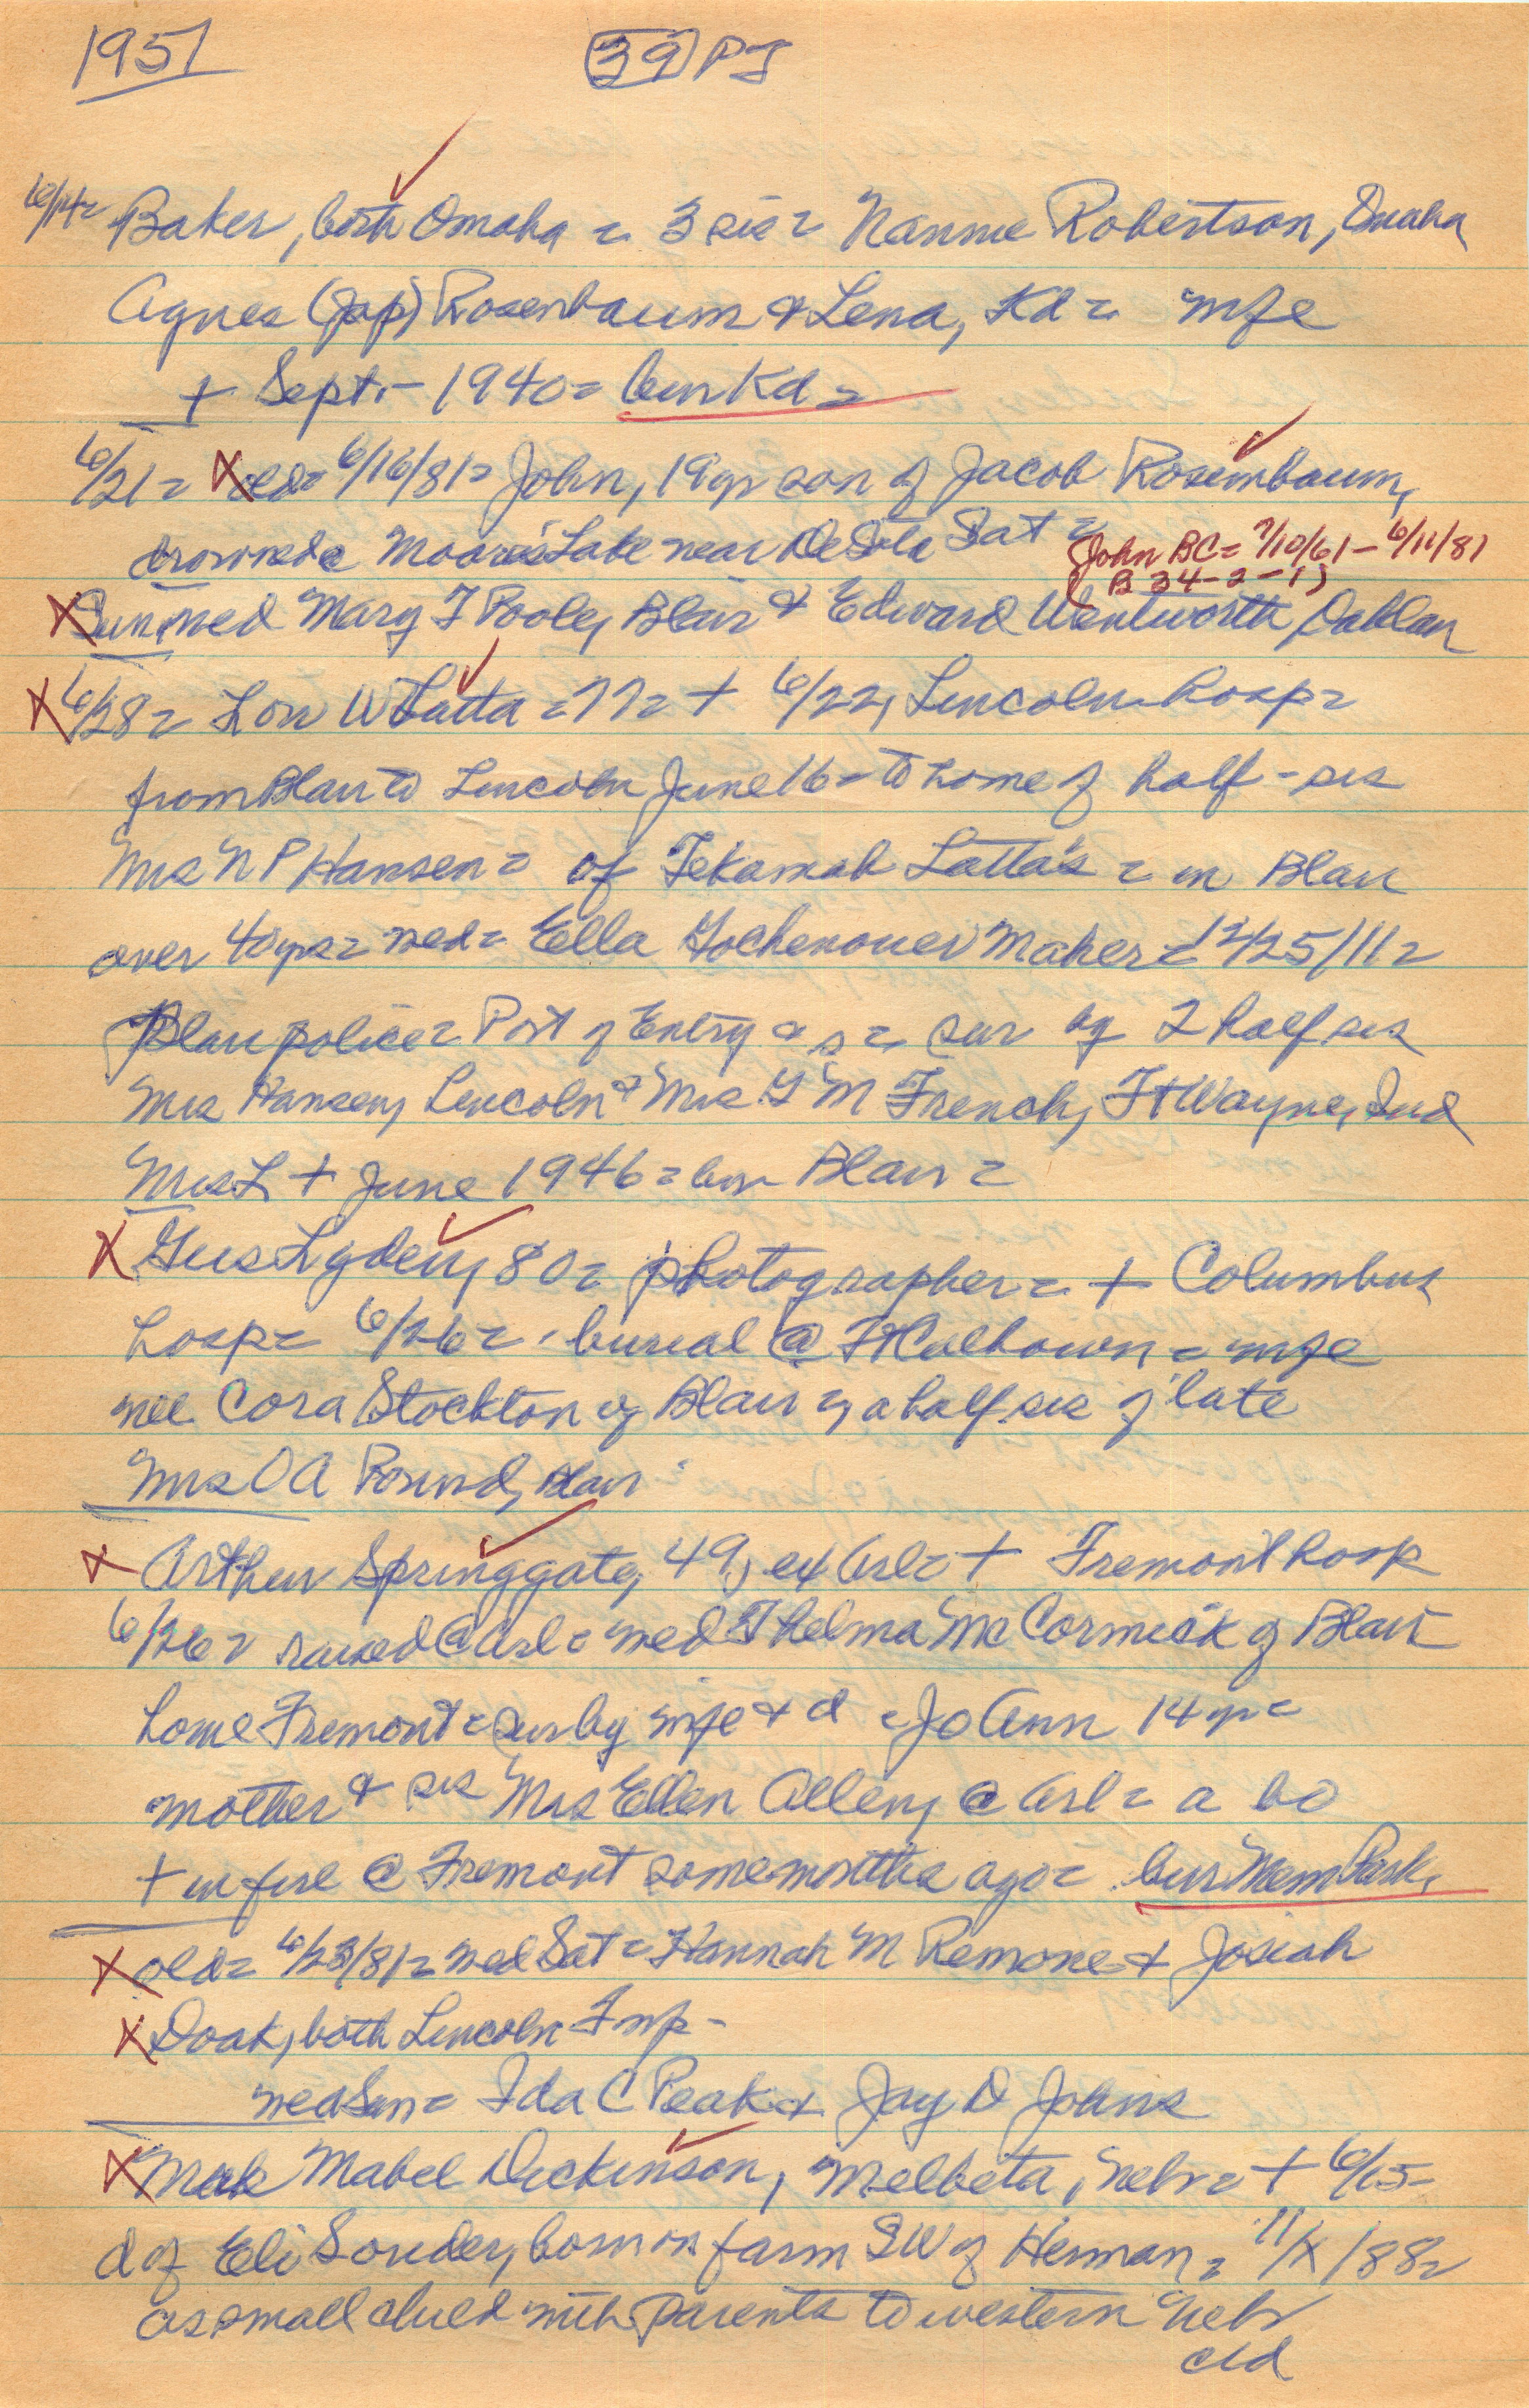 1951 39 PT
6/14= Baker, both Omaha = 3 sis = Nannie Robertson, Omaha
Agnes (Jap) Rosenbaum & Lena, Kd = wife
+ Sept - 1940 = bur Kd =
6/21 = X old = 6/16/81 = John, 19 yr son of Jacob Rosenbaum,
drowned @ Moore's Lake near DeSoto Sat =
(John BC = 7/10/61 - 6/11/81
(B 34-2-1)
X Sun, wed Mary F Poole, Blair & Edward Wentworth, Oaklan
X 6/28 = Lon W Latta = 77 = + 6/22, Lincoln hosp =
from Blair to Lincoln June 16 = to home of half-sis
Mrs N P Hansen = of Tekamah Latta's = in Blair
over 40 yrs = wed = Ella Gochenouer Maher = 12/25/11 =
Blair police = Port of Entry & s = sur by 2 half sis
Mrs Hansen, Lincoln & Mrs G M French, Ft Wayne, Ind
Mrs L + June 1946 = bur Blair =
X Gus Lyden, 80 = photographer = + Columbus
hosp = 6/26 = burial @ Ft Calhoun = wife
nee Cora Stockton of Blair = a half sis of late
Mrs O A Pound, Blair
X Arthur Springgate, 49, ex Arl = + Fremont hosp
6/26 = raised @ Arl = wed Thelma McCormick of Blair
home Fremont = sur by wife & d = JoAnn 14 yr =
mother & sis Mrs Ellen Allen, @ Arl = a bo
+ in fire @ Fremont some months ago = bur Mem Park,
X old = 6/23/81 = wed Sat = Hannah M Remone & Josiah
X Doak, both Lincoln Twp -
wed Sun = Ida C Peak & Jay D Johns
X Mabel Dickinson, Melbeta, Nebr = + 6/15 -
d of Eli Souder, born on farm SW of Herman = 11/X/88 =
as small child with parents to western Nebr
ctd